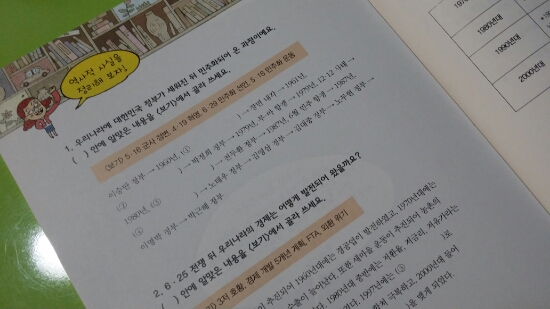 역사적 사실을
정리해 보자!
1. 우리나라에 대한민국 정부가 세워진 뒤 민주화되어 온 과정이에요.
( ) 안에 알맞은 내용을 <보기>에서 골라 쓰세요.
<보기> 5·16 군사 정변, 4·19 혁명, 6·29 민주화 선언, 5·18 민주화 운동
이승만 정부 → 1960년, (① ) → 장면 내각 → 1961년,
(② ) → 박정희 정부 → 1979년, 부·마 항쟁 → 1979년, 12·12 사태 →
1980년, (③ ) → 전두환 정부 → 1987년, 6월 민주 항쟁 → 1987년,
(④ ) → 노태우 정부 → 김영삼 정부 → 김대중 정부 → 노무현 정부 →
이명박 정부 → 박근혜 정부
2. 6·25 전쟁 뒤 우리나라의 경제는 어떻게 발전되어 왔을까요?
( ) 안에 알맞은 내용을 <보기>에서 골라 쓰세요.
3저 호황, 경제 개발 5개년 계획, FTA, 외환 위기
추진되어 1960년대에는 경공업이 발전하였고, 1970년대에는
수출이 늘어났다. 또한 새마을 운동이 추진되어 농촌의
1980년대 중반에는 저환율, 저금리, 저유가라는
1997년에는 (③
극복하고, 2000년대 들어
을 맺게 되었다.
1970
1980년대
2000년대